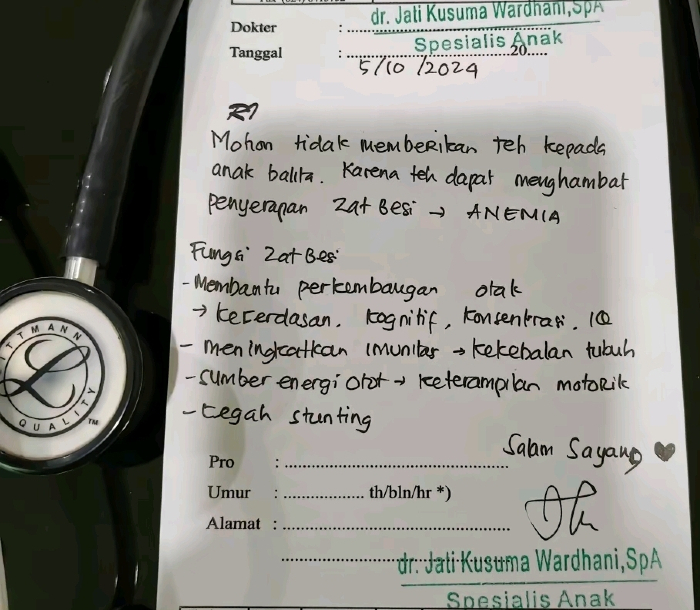 Dokter : dr. Jati Kusuma Wardhani,SpA
Spesialis Anak
Tanggal : 20.....
5/10/2024
R/
Mohon tidak memberikan teh kepada
anak balita. Karena teh dapat menghambat
penyerapan Zat Besi → ANEMIA
Fungsi Zat Besi
- Membantu perkembangan otak
→ kecerdasan, kognitif, konsentrasi, IQ
- meningkatkan imunitas → kekebalan tubuh
- sumber energi otot → keterampilan motorik
- cegah stunting
Salam Sayang ♥
Pro :
Umur : th/bln/hr *)
Alamat :
dr. Jati Kusuma Wardhani,SpA
Spesialis Anak
LITTMANN
QUALITY TM